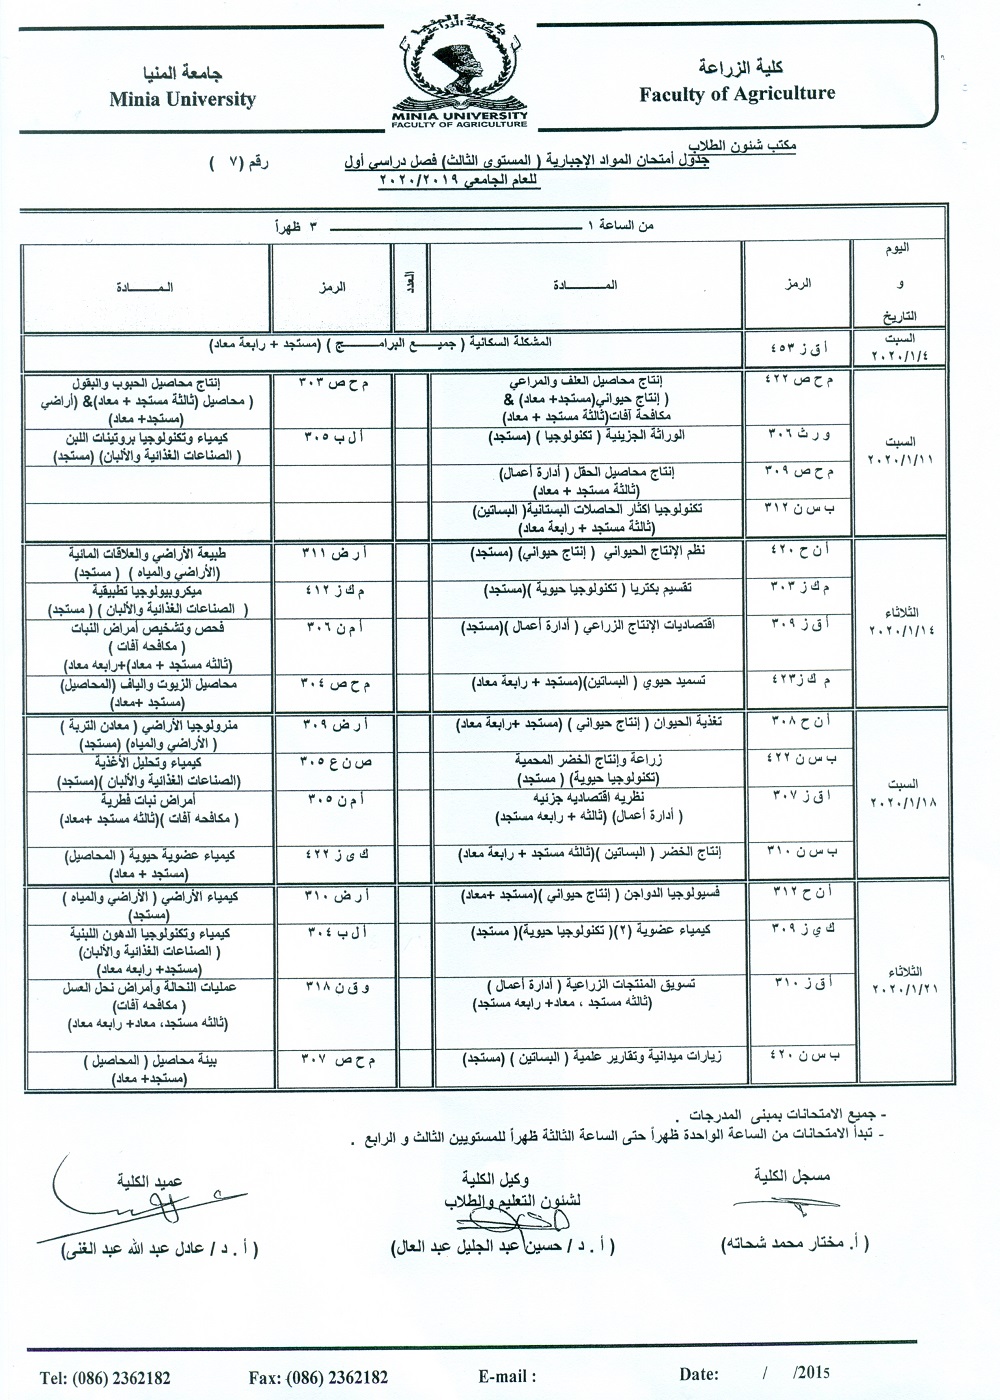 جامعة المنيا
كلية الزراعة
MINIA UNIVERSITY
FACULTY OF AGRICULTURE
كلية الزراعة
Faculty of Agriculture
جامعة المنيا
Minia University
مكتب شئون الطلاب
جدول أمتحان المواد الإجبارية ( المستوى الثالث) فصل دراسى أول رقم (٧ )
للعام الجامعي ٢٠٢٠/٢٠١٩
من الساعة ١ ـــــــــ ٣ ظهراً
اليوم
و
التاريخ
الرمز
المــــــــادة
العدد
الرمز
المــــــــادة
السبت
٢٠٢٠/١/٤
أ ق ز ٤٥٣
المشكلة السكانية ( جميــــع البرامــــــج ) (مستجد + رابعة معاد)
السبت
٢٠٢٠/١/١١
م ح ص ٤٢٢
إنتاج محاصيل العلف والمراعي
( إنتاج حيواني(مستجد+ معاد) &
مكافحة آفات(ثالثة مستجد + معاد)
م ح ص ٣٠٣
إنتاج محاصيل الحبوب والبقول
( محاصيل (ثالثة مستجد + معاد)& (أراضي
مستجد+ معاد)
و ر ث ٣٠٦
الوراثة الجزيئية ( تكنولوجيا ) (مستجد)
أ ل ب ٣٠٥
كيمياء وتكنولوجيا بروتينات اللبن
( الصناعات الغذائية والألبان) (مستجد)
م ح ص ٣٠٩
إنتاج محاصيل الحقل ( أدارة أعمال)
(ثالثة مستجد + معاد)
ب س ن ٣١٢
تكنولوجيا اكثار الحاصلات البستانية( البساتين)
(ثالثة مستجد + رابعة معاد)
الثلاثاء
٢٠٢٠/١/١٤
أ ن ح ٤٢٠
نظم الإنتاج الحيواني ( إنتاج حيواني) (مستجد)
أ ر ض ٣١١
طبيعة الأراضي والعلاقات المائية
(الأراضي والمياه ) ( مستجد)
م ك ز ٣٠٣
تقسيم بكتريا ( تكنولوجيا حيوية )(مستجد)
م ك ز ٤١٢
ميكروبيولوجيا تطبيقية
( الصناعات الغذائية والألبان ) ( مستجد)
أ ق ز ٣٠٩
اقتصاديات الإنتاج الزراعي ( أدارة أعمال )(مستجد)
أ م ن ٣٠٦
فحص وتشخيص أمراض النبات
( مكافحه آفات )
(ثالثه مستجد + معاد)+رابعه معاد)
م ك ز٤٢٣
تسميد حيوي ( البساتين)(مستجد + رابعة معاد)
م ح ص ٣٠٤
محاصيل الزيوت والياف (المحاصيل)
(مستجد +معاد)
السبت
٢٠٢٠/١/١٨
أ ن ح ٣٠٨
تغذية الحيوان ( إنتاج حيواني ) (مستجد +رابعة معاد)
أ ر ض ٣٠٩
منرولوجيا الأراضي ( معادن التربة )
( الأراضي والمياه) (مستجد)
ب س ن ٤٢٢
زراعة وإنتاج الخضر المحمية
(تكنولوجيا حيوية) ( مستجد)
ص ن ع ٣٠٥
كيمياء وتحليل الأغذية
(الصناعات الغذائية والألبان )(مستجد)
ا ق ز ٣٠٧
نظريه اقتصاديه جزئيه
( أدارة أعمال) (ثالثه + رابعه مستجد)
أ م ن ٣٠٥
أمراض نبات فطرية
( مكافحه آفات )(ثالثه مستجد +معاد)
ب س ن ٣١٠
إنتاج الخضر ( البساتين )(ثالثه مستجد + رابعة معاد)
ك ى ز ٤٢٢
كيمياء عضوية حيوية ( المحاصيل)
(مستجد + معاد)
الثلاثاء
٢٠٢٠/١/٢١
أ ن ح ٣١٢
فسيولوجيا الدواجن ( إنتاج حيواني )(مستجد +معاد)
أ ر ض ٣١٠
كيمياء الأراضي ( الأراضي والمياه )
(مستجد)
ك ي ز ٣٠٩
كيمياء عضوية (٢)( تكنولوجيا حيوية)( مستجد)
أ ل ب ٣٠٤
كيمياء وتكنولوجيا الدهون اللبنية
( الصناعات الغذائية والألبان)
(مستجد+ رابعه معاد)
أ ق ز ٣١٠
تسويق المنتجات الزراعية ( أدارة أعمال )
(ثالثه مستجد ، معاد+ رابعه مستجد)
و ق ن ٣١٨
عمليات النحالة وأمراض نحل العسل
( مكافحه آفات)
(ثالثه مستجد، معاد+ رابعه معاد)
ب س ن ٤٢٠
زيارات ميدانية وتقارير علمية ( البساتين ) (مستجد)
م ح ص ٣٠٧
بيئة محاصيل ( المحاصيل )
(مستجد+ معاد)
- جميع الامتحانات بمبنى المدرجات .
- تبدأ الامتحانات من الساعة الواحدة ظهراً حتى الساعة الثالثة ظهراً للمستويين الثالث و الرابع .
مسجل الكلية
وكيل الكلية
عميد الكلية
لشئون التعليم والطلاب
( أ. مختار محمد شحاته)
( أ . د / حسين عبد الجليل عبد العال)
( أ . د / عادل عبد الله عبد الغنى)
Tel: (086) 2362182 Fax: (086) 2362182 E-mail : Date: / /2015